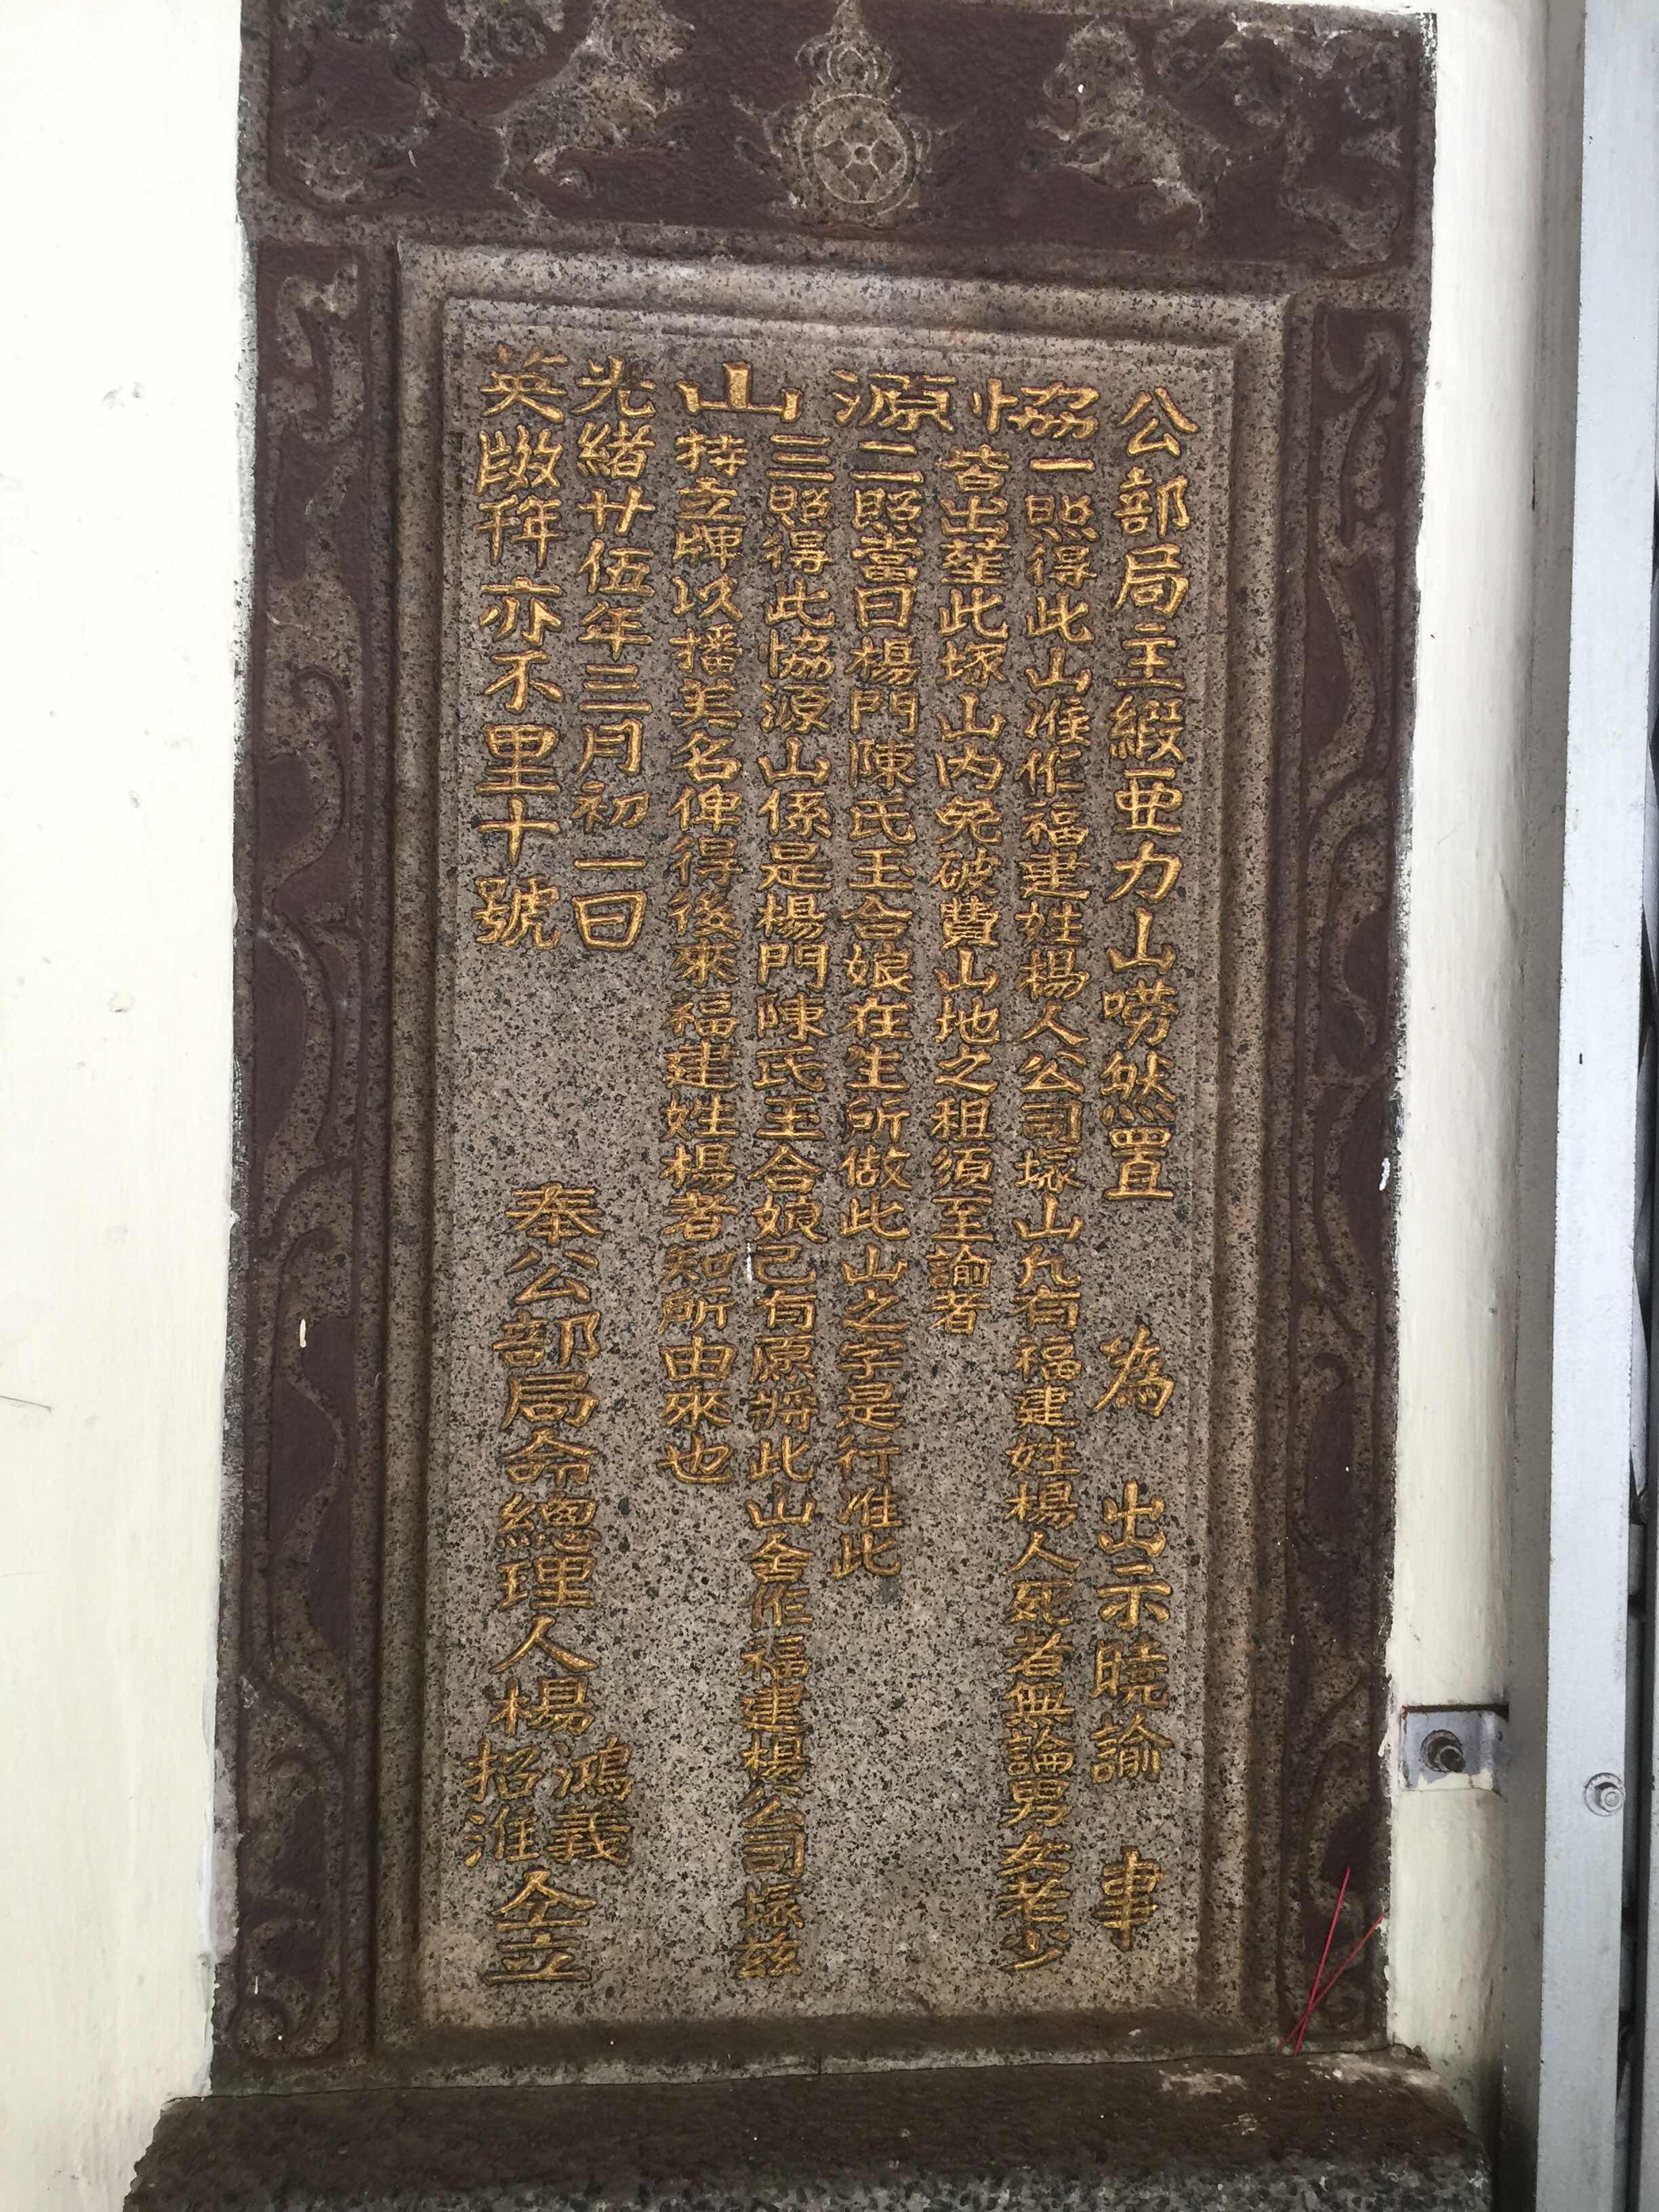 公部局主緞亞力山嘮然置 為 出示曉諭 事
協源山
一照得此山准作福建姓楊人公司塚山凡有福建姓楊人死者無論男女老少
皆出塟此塚山內免破費山地之租須至諭者
二照當日楊門陳氏玉合娘在生所做此山之字是行准此
三照得此協源山係是楊門陳氏玉合娘己有原將此山舍作福建楊公司塚茲
持立牌以播美名俾得後來福建姓楊者知所由來也
光緒廿伍年三月初一日
英 亦不里十號
奉公部局命總理人楊
鴻義
招淮
仝立